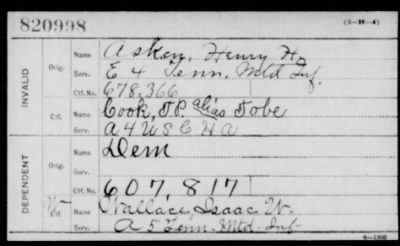 820998
(3-H-4)
INVALID
Orig.
Name Asken, Henry H.
Serv. E 4 Tenn. Mtd Inf.
Ctf. No. 678,366
Ctf.
Name Cook, J.P. alias Tobe
Serv. A 4 U S C H A
DEPENDENT
Orig.
Name Dem
Serv.
Ctf. No. 607,817
Ctf.
Name Wallace, Isaac W.
Serv. A 5 Tenn. Mtd. Inf